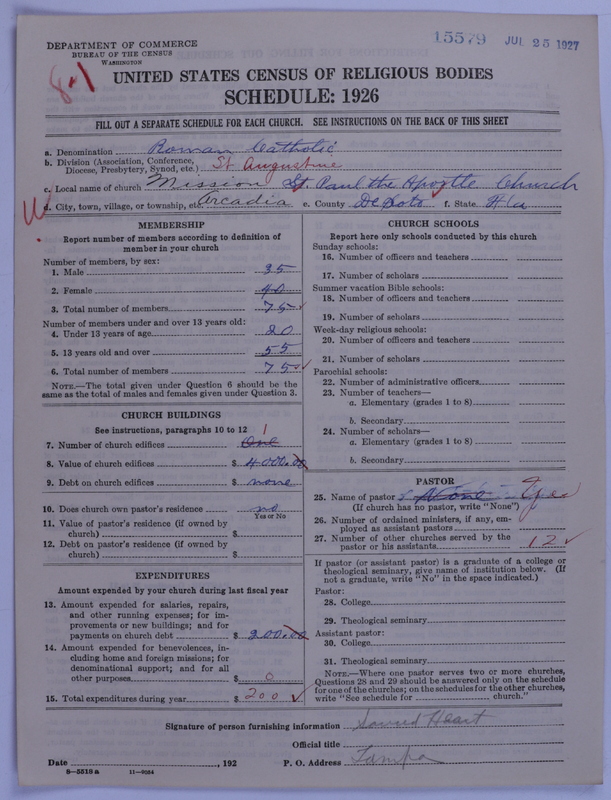 15579 JUL 25 1927
DEPARTMENT OF COMMERCE
BUREAU OF THE CENSUS
WASHINGTON
8-1
UNITED STATES CENSUS OF RELIGIOUS BODIES
SCHEDULE: 1926
FILL OUT A SEPARATE SCHEDULE FOR EACH CHURCH. SEE INSTRUCTIONS ON THE BACK OF THIS SHEET
a. Denomination Roman Catholic
b. Division (Association, Conference,
Diocese, Presbytery, Synod, etc.) St Augustine
c. Local name of church Mission St. Paul the Apostle Church
d. City, town, village, or township, etc. Arcadia e. County DeSoto f. State Fla
MEMBERSHIP
Report number of members according to definition of
member in your church
Number of members, by sex:
1. Male 35
2. Female 40
3. Total number of members 75
Number of members under and over 13 years old:
4. Under 13 years of age 20
5. 13 years old and over 55
6. Total number of members 75
NOTE.—The total given under Question 6 should be
same as the total of males and females given under Question 3.
CHURCH BUILDINGS
See instructions, paragraphs 10 to 12
7. Number of church edifices One 1
8. Value of church edifices $ 4000.00
9. Debt on church edifices $ none
10. Does church own pastor's residence no
Yes or No
11. Value of pastor's residence (if owned by
church) $
12. Debt on pastor's residence (if owned by
church) $
EXPENDITURES
Amount expended by church during last fiscal year
13. Amount expended for salaries, repairs,
and other running expenses; for im-
provements or new buildings; and for
payments on church debt $ 200.00
14. Amount expended for benevolences, in-
cluding home and foreign missions; for
denominational support; and for all
other purposes $ 0
15. Total expenditures during year $ 200
CHURCH SCHOOLS
Report here only schools conducted by this church
Sunday schools:
16. Number of officers and teachers
17. Number of scholars
Summer vacation Bible schools:
18. Number of officers and teachers
19. Number of scholars
Week-day religious schools:
20. Number of officers and teachers
21. Number of scholars
Parochial schools:
22. Number of administrative officers
23. Number of teachers—
a. Elementary (grades 1 to 8)
b. Secondary
24. Number of scholars—
a. Elementary (grades 1 to 8)
b. Secondary
PASTOR
25. Name of pastor None Yes
(If church has no pastor, write "None")
26. Number of ordained ministers, if any, em-
ployed as assistant pastors
27. Number of other churches served by the
pastor or his assistants 12
If pastor (or assistant pastor) is a graduate of a college or
theological seminary, give name of institution below. (If
not a graduate, write "No" in the space indicated.)
Pastor:
28. College
29. Theological seminary
Assistant pastor:
30. College
31. Theological seminary
NOTE.—Where one pastor serves two or more churches,
Questions 28 and 29 should be answered only on the schedule
for one of the churches; on the schedules for the other churches,
write "See schedule for church."
Signature of person furnishing information Sacred Heart
Official title
Date , 192 P. O. Address Tampa
8—5518 a 11—9084